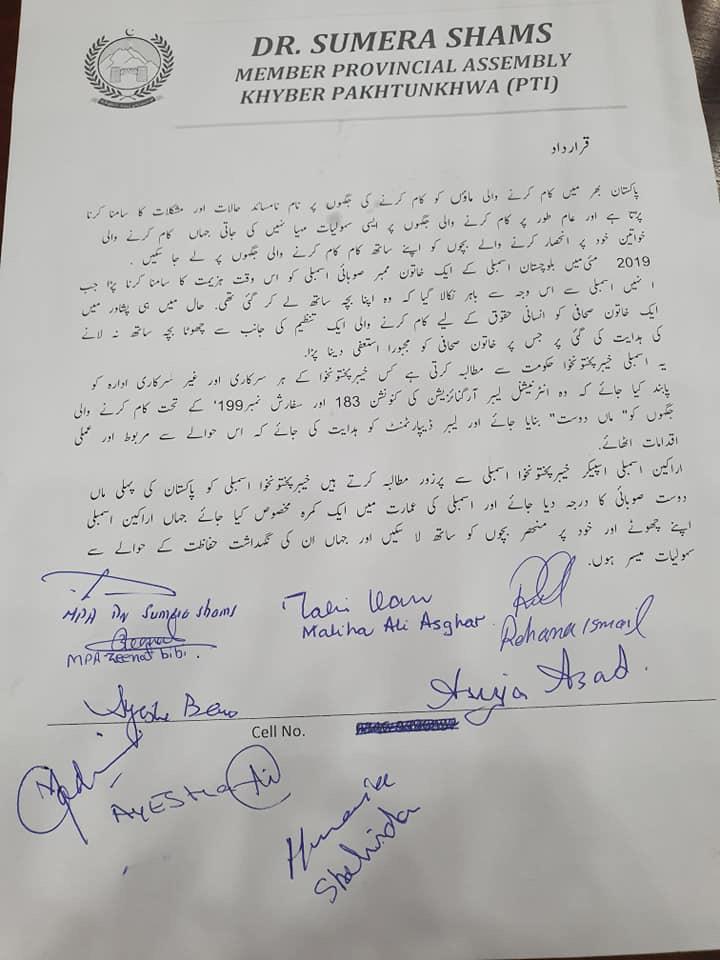 DR. SUMERA SHAMS
MEMBER PROVINCIAL ASSEMBLY
KHYBER PAKHTUNKHWA (PTI)
قرارداد
پاکستان بھر میں کام کرنے والی ماؤں کو کام کرنے کی جگہوں پر نام نامساند حالات اور مشکلات کا سامنا کرنا
پڑتا ہے اور عام طور پر کام کرنے والی جگہوں پر ایسی سہولیات مہیا نہیں کی جاتی جہاں کام کرنے والی
خواتین خود پر انحصار کرنے والے بچوں کو اپنے ساتھ کام کام کرنے والی جگہوں پر لے جا سکیں .
2019 مئی میں بلوچستان اسمبلی کے ایک خاتون ممبر صوبائی اسمبلی کو اس وقت ہزیمت کا سامنا کرنا پڑا جب
ا نہیں اسمبلی سے اس وجہ سے باہر نکالا گیا کہ وہ اپنا بچہ ساتھ لے کر گئی تھی. حال میں ہی پشاور میں
ایک خاتون صحافی کو انسانی حقوق کے لیے کام کرنے والی ایک تنظیم کی جانب سے چھوٹا بچہ ساتھ نہ لانے
کی ہدایت کی گئی پر جس پر خاتون صحافی کو مجبورا استعفی دینا پڑا.
یہ اسمبلی خیبرپختونخوا حکومت سے مطالبہ کرتی ہے کس خیبرپختونخوا کے ہر سرکاری اور غیر سرکاری ادارہ کو
پابند کیا جائے کہ وہ انٹرنیشنل لیبر آرگنائزیشن کی کنونشن 183 اور سفارش نمبر199' کے تحت کام کرنے والی
جگہوں کو" ماں دوست" بنایا جائے اور لیبر ڈیپارٹمنٹ کو ہدایت کی جائے کہ اس حوالے سے مربوط اور عملی
اقدامات اٹھائے.
اراکین اسمبلی اسپیکر خیبرپختونخوا اسمبلی سے پرزور مطالبہ کرتے ہیں خیبرپختونخوا اسمبلی کو پاکستان کی پہلی ماں
دوست صوبائی کا درجہ دیا جائے اور اسمبلی کی عمارت میں ایک کمرہ مخصوص کیا جائے جہاں اراکین اسمبلی
اپنے چھوٹے اور خود پر منحصر بچوں کو ساتھ لا سکیں اور جہاں ان کی نگہداشت حفاظت کے حوالے سے
سہولیات میسر ہوں.
MPA Dr Sumera Shams
Maliha Ali Asghar
Rehana Ismail
MPA Zeenat bibi.
Ayesha Bano
Asiya Asad.
Cell No.
AYESHA
Humaira
Shahida